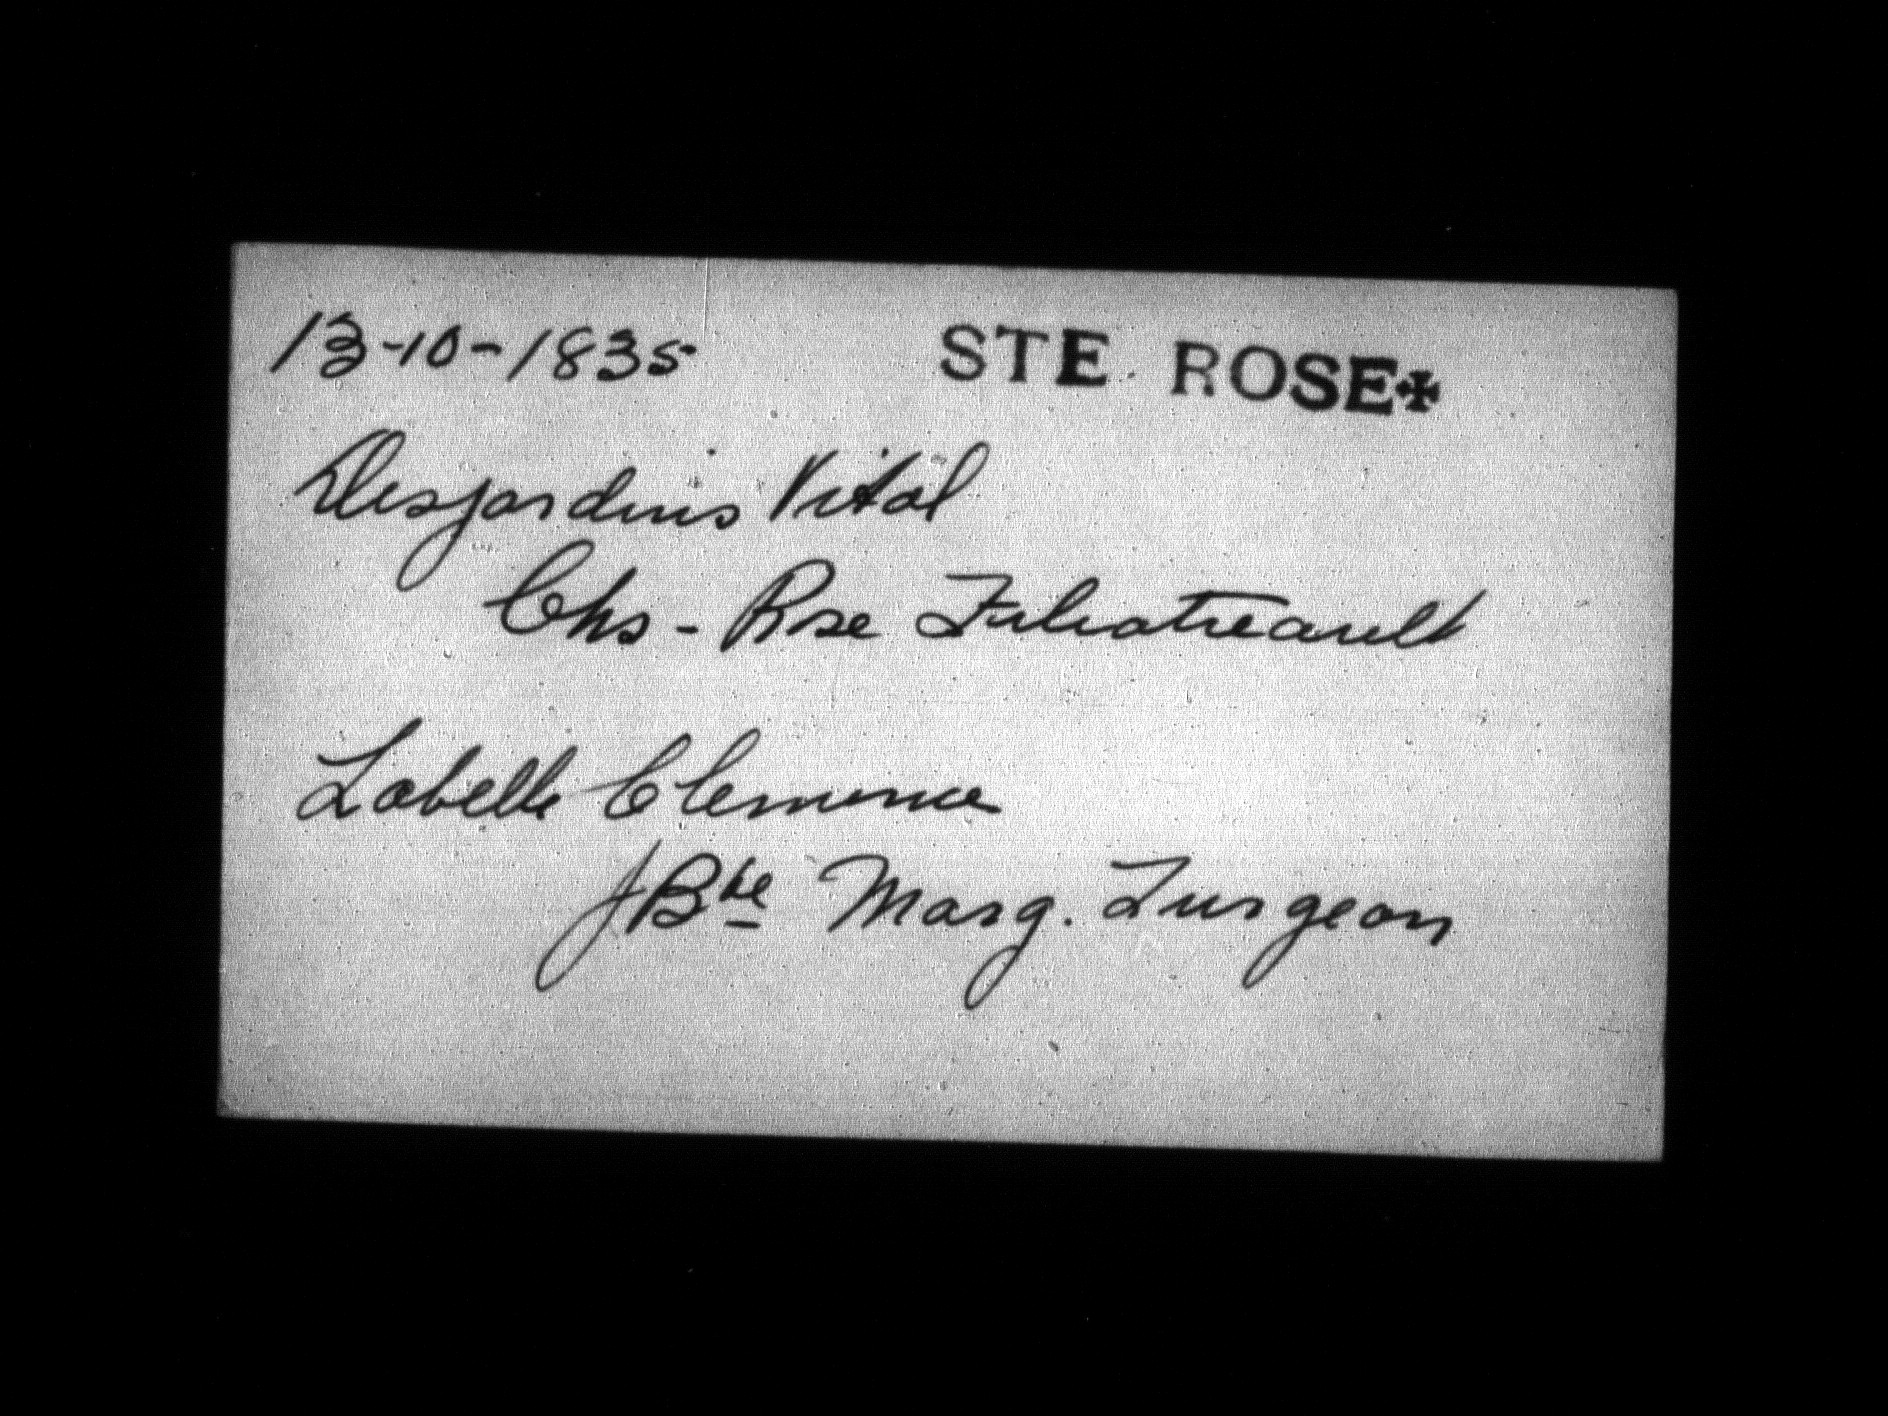 13-10-1835 STE ROSE✠
Desjardins Vital
Chs - Rse Filiatreault
Labelle Clemence
JBte Marg. Turgeon